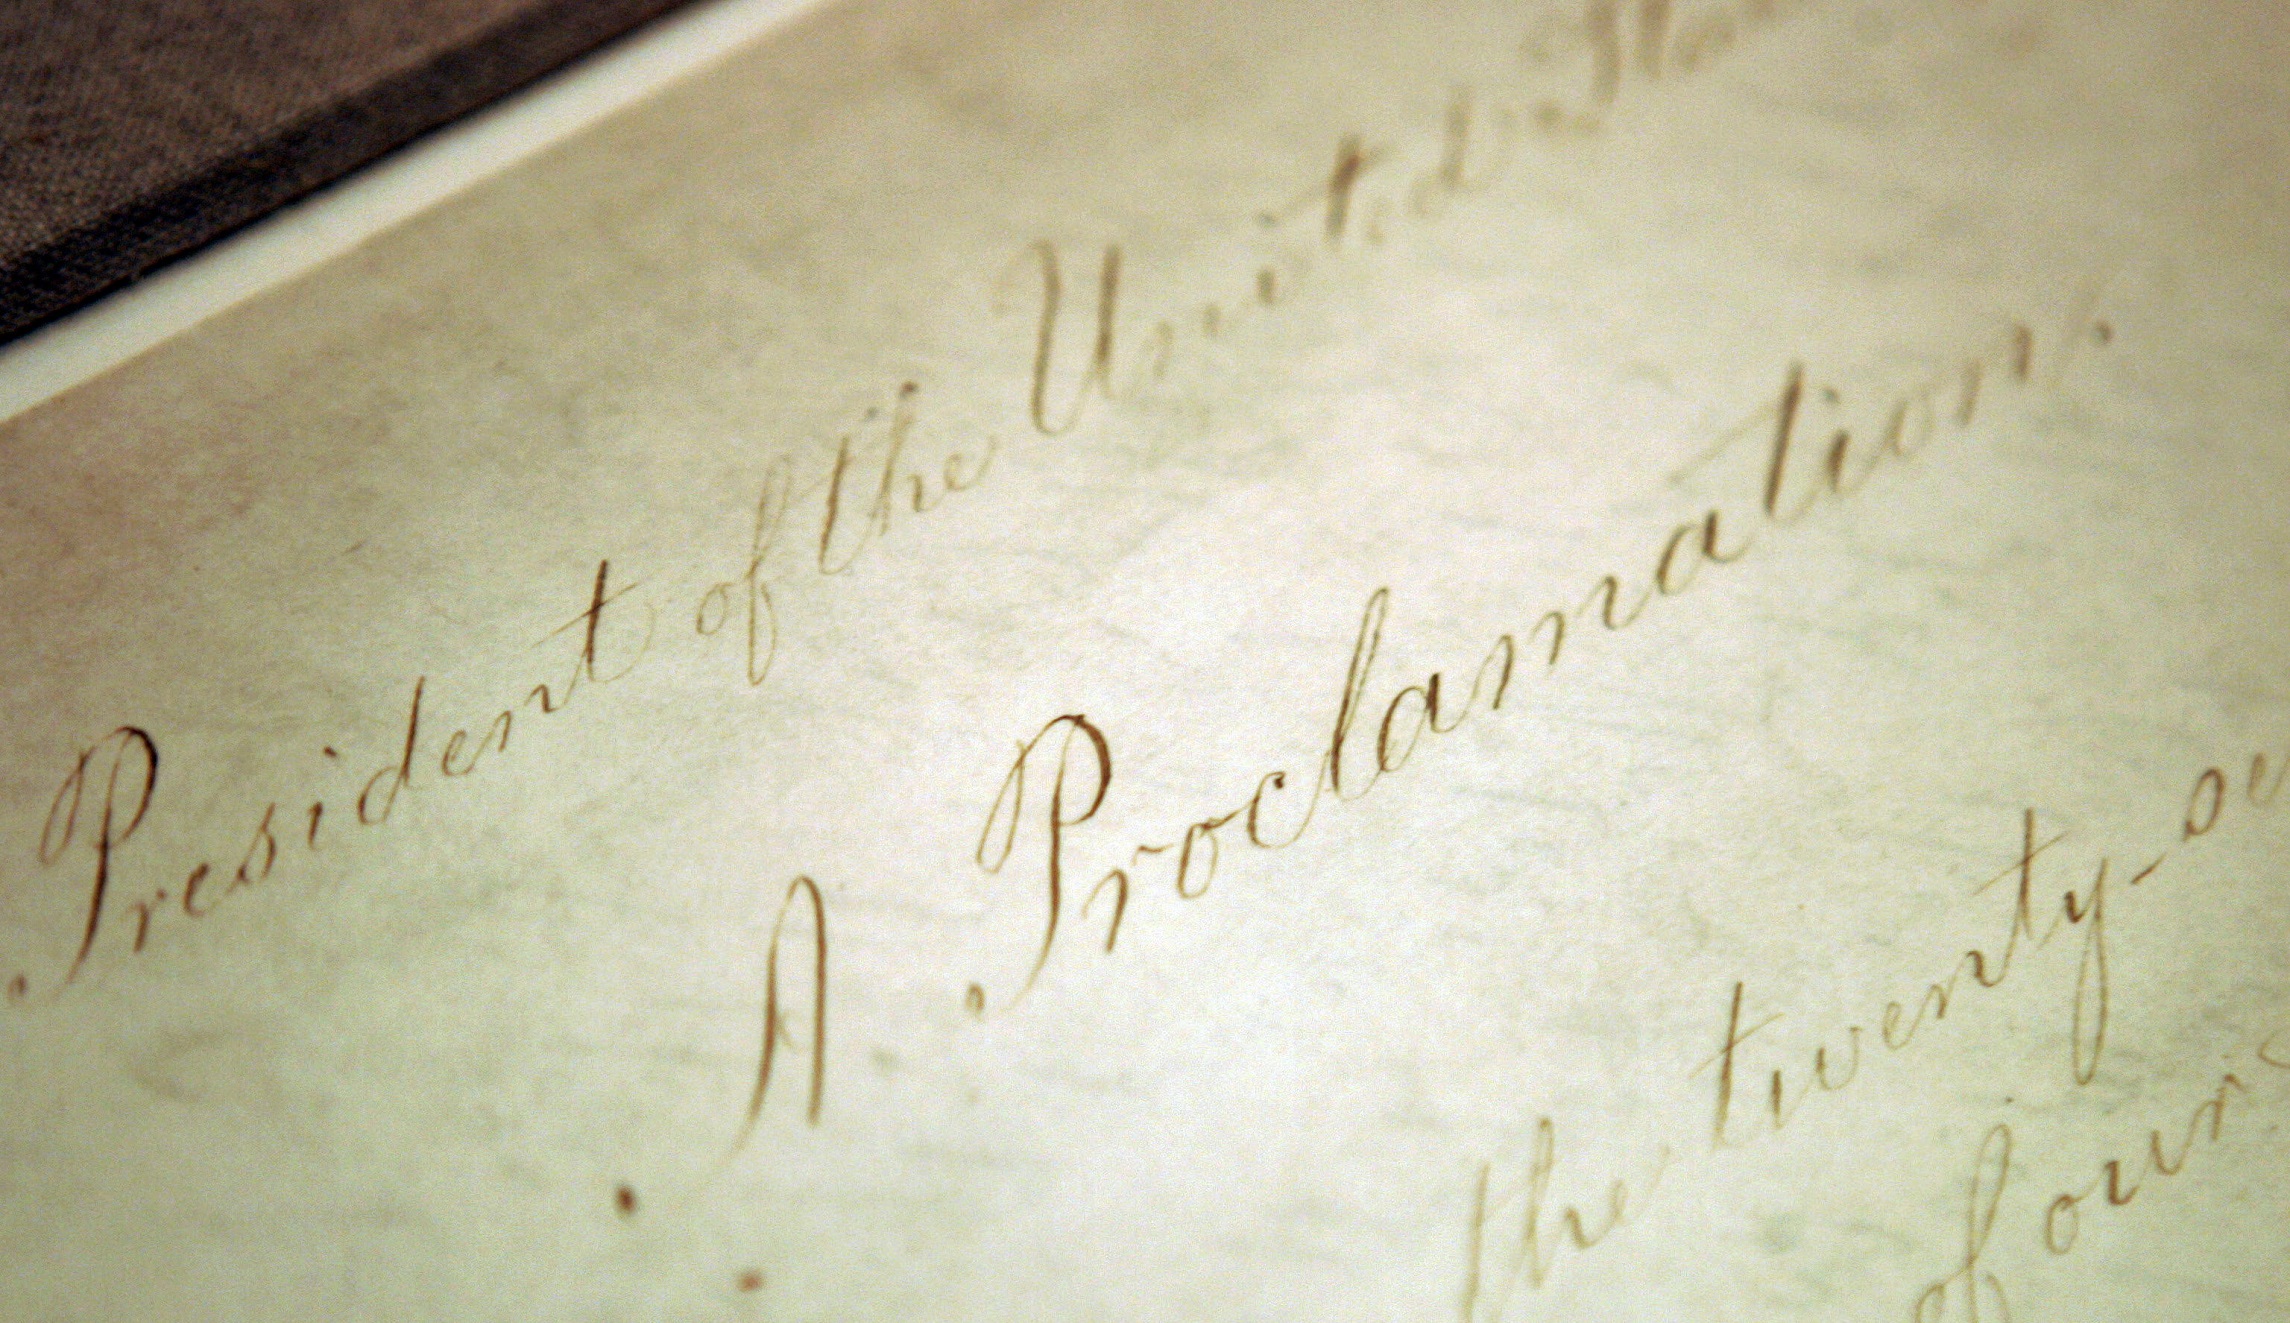 President of the United Sta
A Proclamation.
the twenty-se
of our